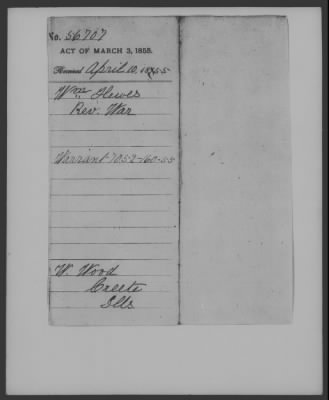 No. 56707
ACT OF MARCH 3, 1855.
Received April 10, 1855
Wm. Hewes
Rev. War
Warrant 7052-160-55
W. Wood
Creete
Ills